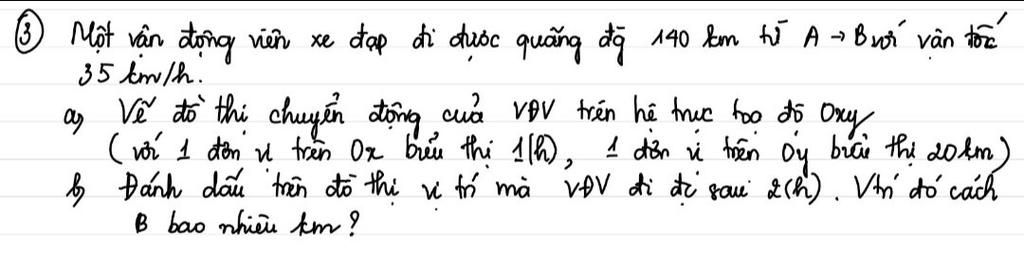 ③ Một vận động viên xe đạp đi được quãng đg 140 km từ A → B với vận tốc
35 km/h.
a) Vẽ đồ thị chuyển động của VĐV trên hệ trục toạ độ Oxy
(với 1 đơn vị trên Ox biểu thị 1(h), 1 đơn vị trên Oy biểu thị 20km)
b) Đánh dấu trên đồ thị vị trí mà VĐV đi đc sau 2(h). Vtrí đó cách
B bao nhiêu km?